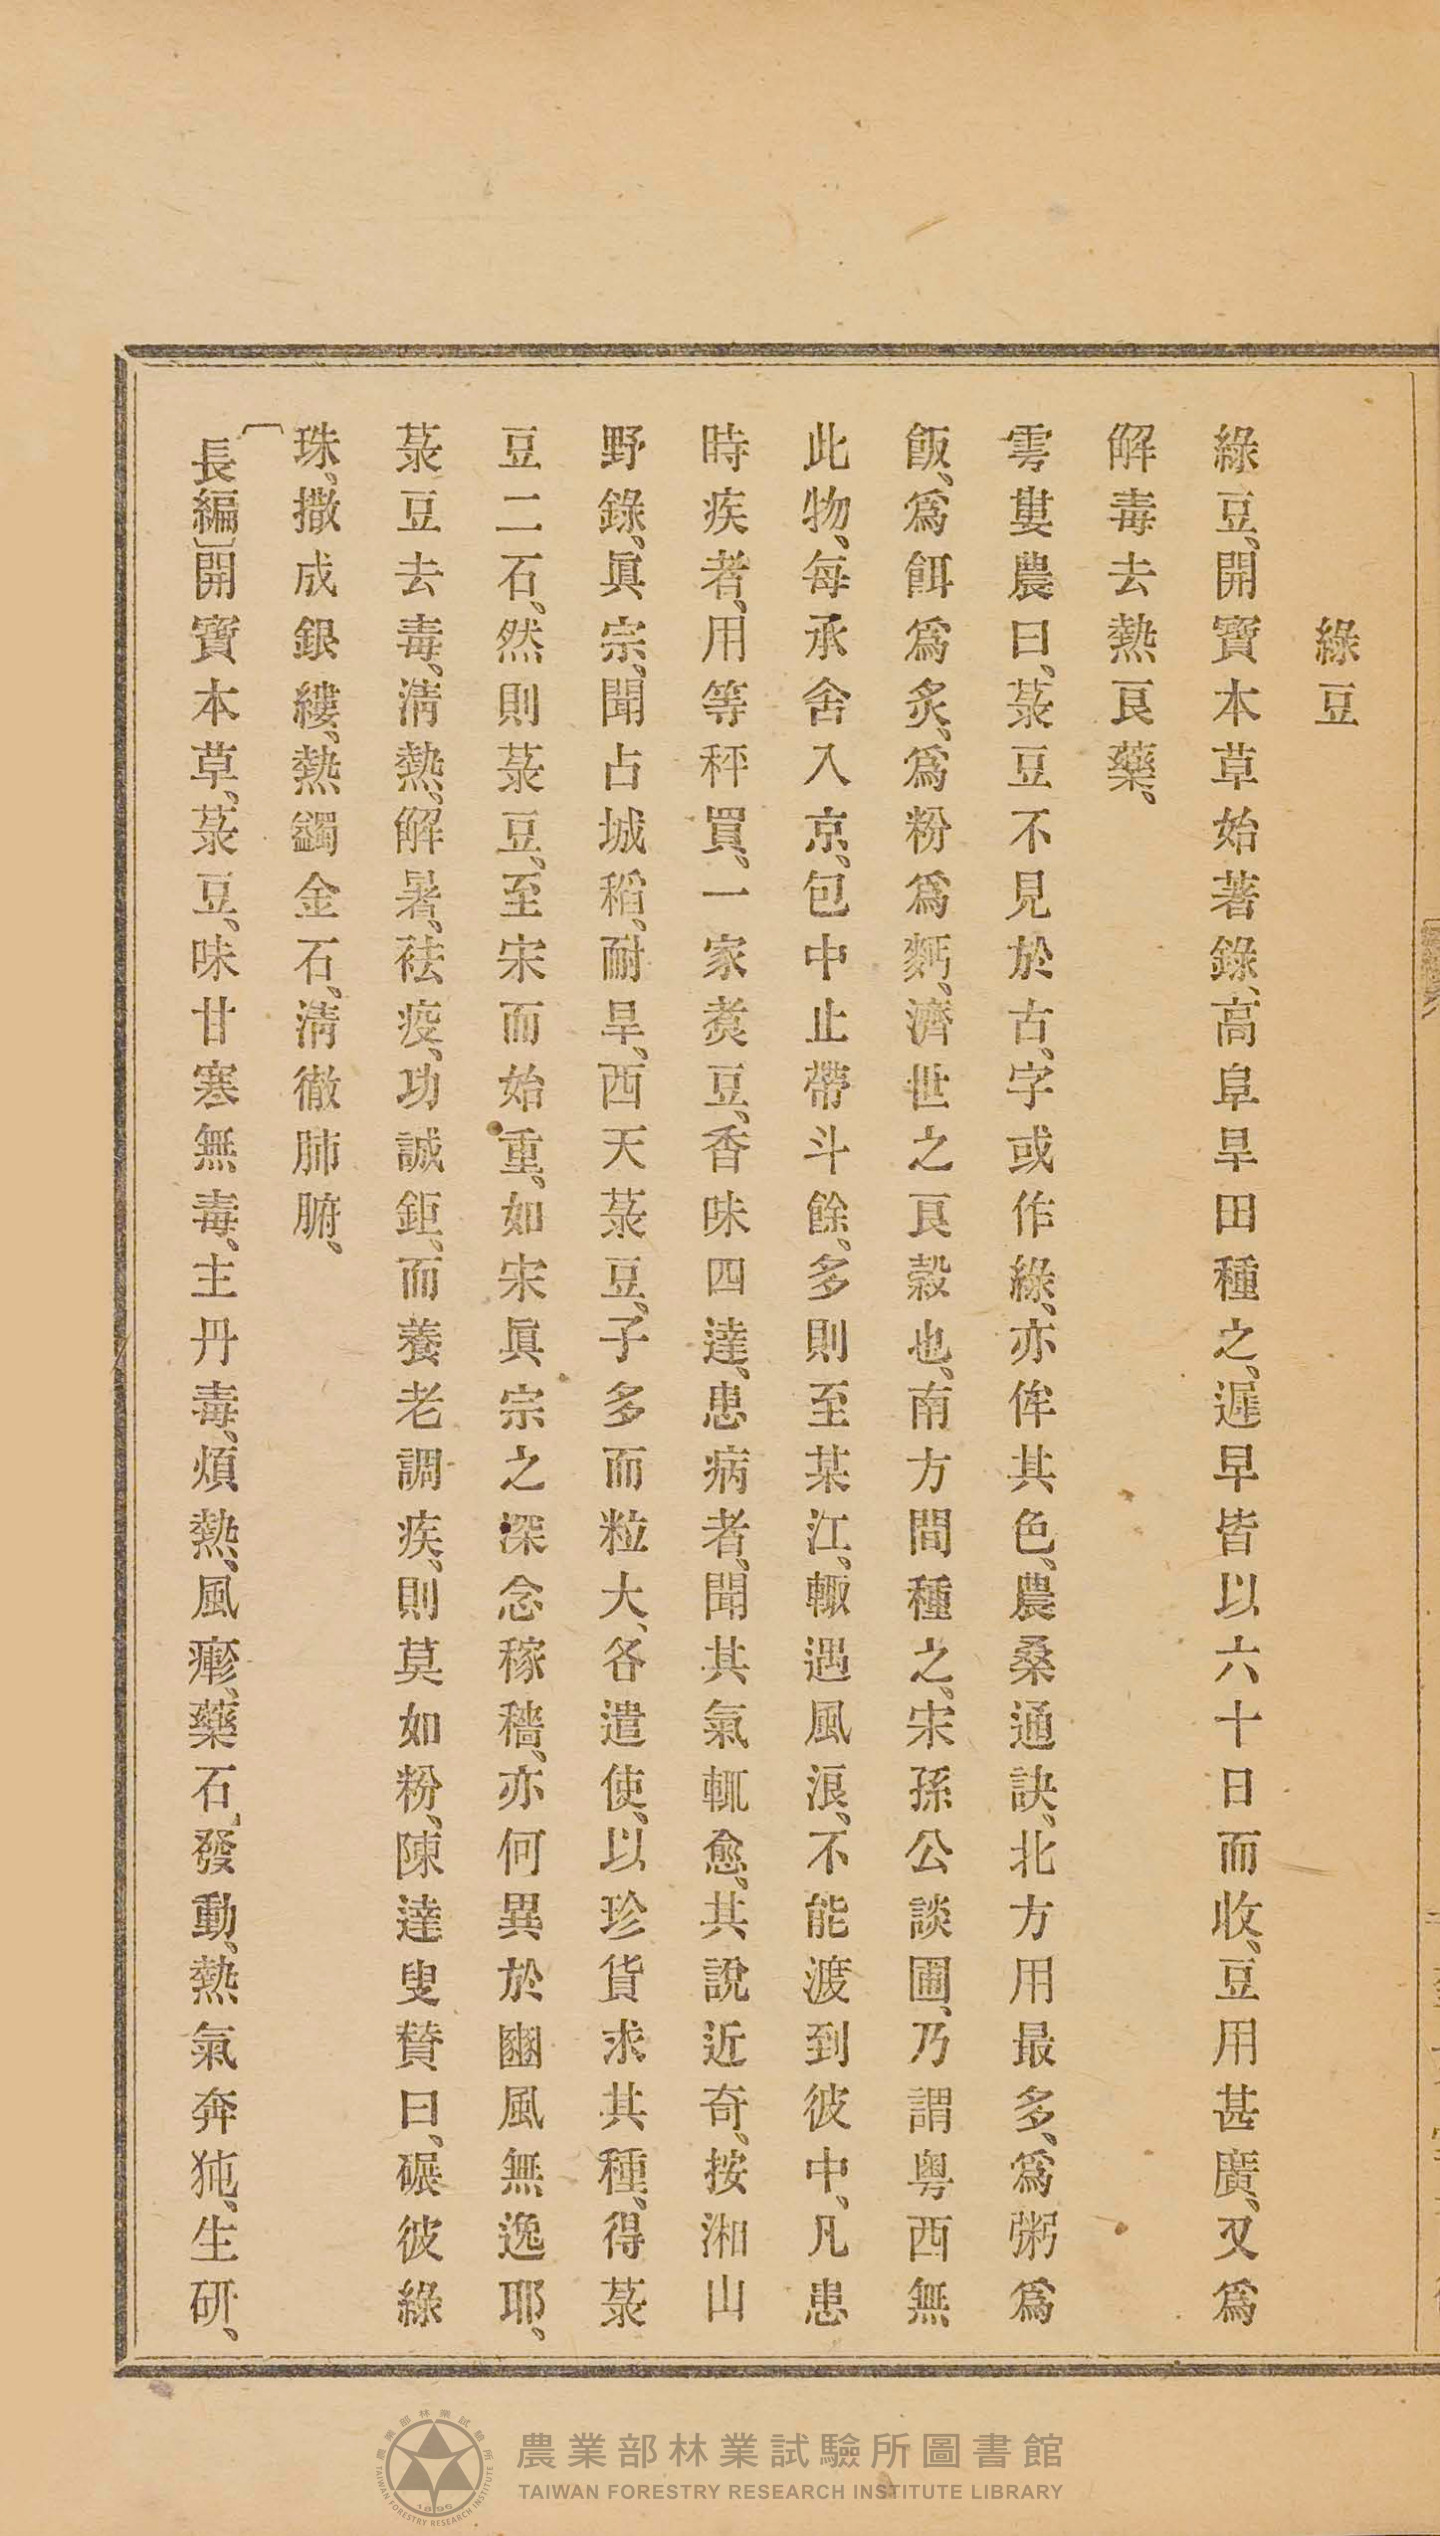 綠豆
綠豆、開寶本草始著錄、高阜旱田種之、遲早皆以六十日而收、豆用甚廣、又爲
解毒去熱良藥、
雩婁農曰、菉豆不見於古、字或作綠、亦侔其色、農桑通訣、北方用最多、爲粥爲
飯、爲餌爲炙、爲粉爲麪、濟世之良穀也、南方間種之、宋孫公談圃、乃謂粵西無
此物、每承舍入京、包中止帶斗餘、多則至某江、輙遇風浪、不能渡到彼中、凡患
時疾者、用等秤買、一家煑豆、香味四達、患病者、聞其氣輒愈、其說近奇、按湘山
野錄、眞宗、聞占城稻、耐旱、西天菉豆、子多而粒大、各遣使、以珍貨求其種、得菉
豆二石、然則菉豆、至宋而始重、如宋眞宗之深念稼穡、亦何異於豳風無逸耶、
菉豆去毒、淸熱、解暑、祛疫、功誠鉅、而養老調疾、則莫如粉、陳達叟贊曰、碾彼綠
珠、撒成銀縷、熱蠲金石、淸徹肺腑、
〔長編〕開寶本草、菉豆、味甘寒無毒、主丹毒、煩熱、風疹、藥石、發動、熱氣奔㹠、生研、
農業部林業試驗所圖書館
TAIWAN FORESTRY RESEARCH INSTITUTE LIBRARY